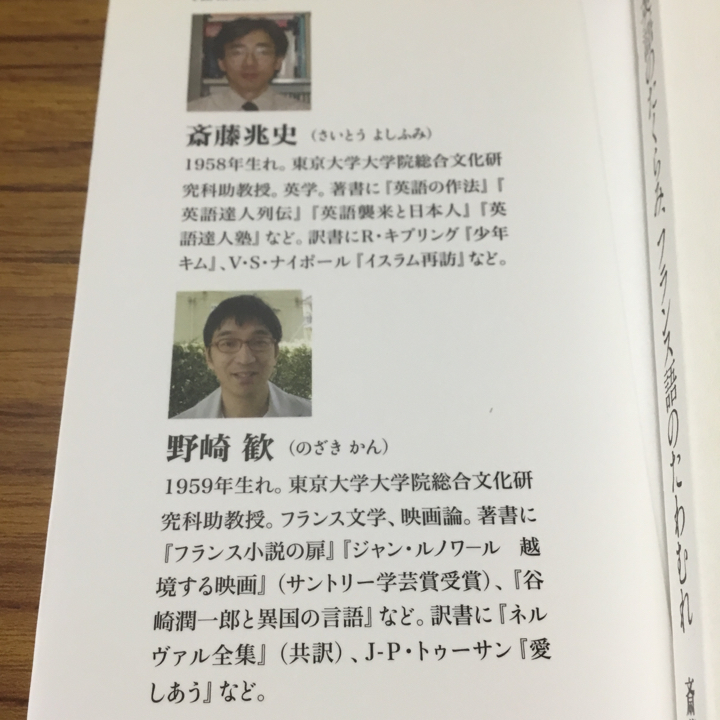 斎藤兆史（さいとう よしふみ）
1958年生れ。東京大学大学院総合文化研
究科助教授。英学。著書に『英語の作法』『
英語達人列伝』『英語襲来と日本人』『英
語達人塾』など。訳書にR・キプリング『少年
キム』、V・S・ナイポール『イスラム再訪』など。
野崎 歓（のざき かん）
1959年生れ。東京大学大学院総合文化研
究科助教授。フランス文学、映画論。著書に
『フランス小説の扉』『ジャン・ルノワール　越
境する映画』（サントリー学芸賞受賞）、『谷
崎潤一郎と異国の言語』など。訳書に『ネル
ヴァル全集』（共訳）、J-P・トゥーサン『愛
しあう』など。
語のたくらみ、フランス語のたわむれ
斎